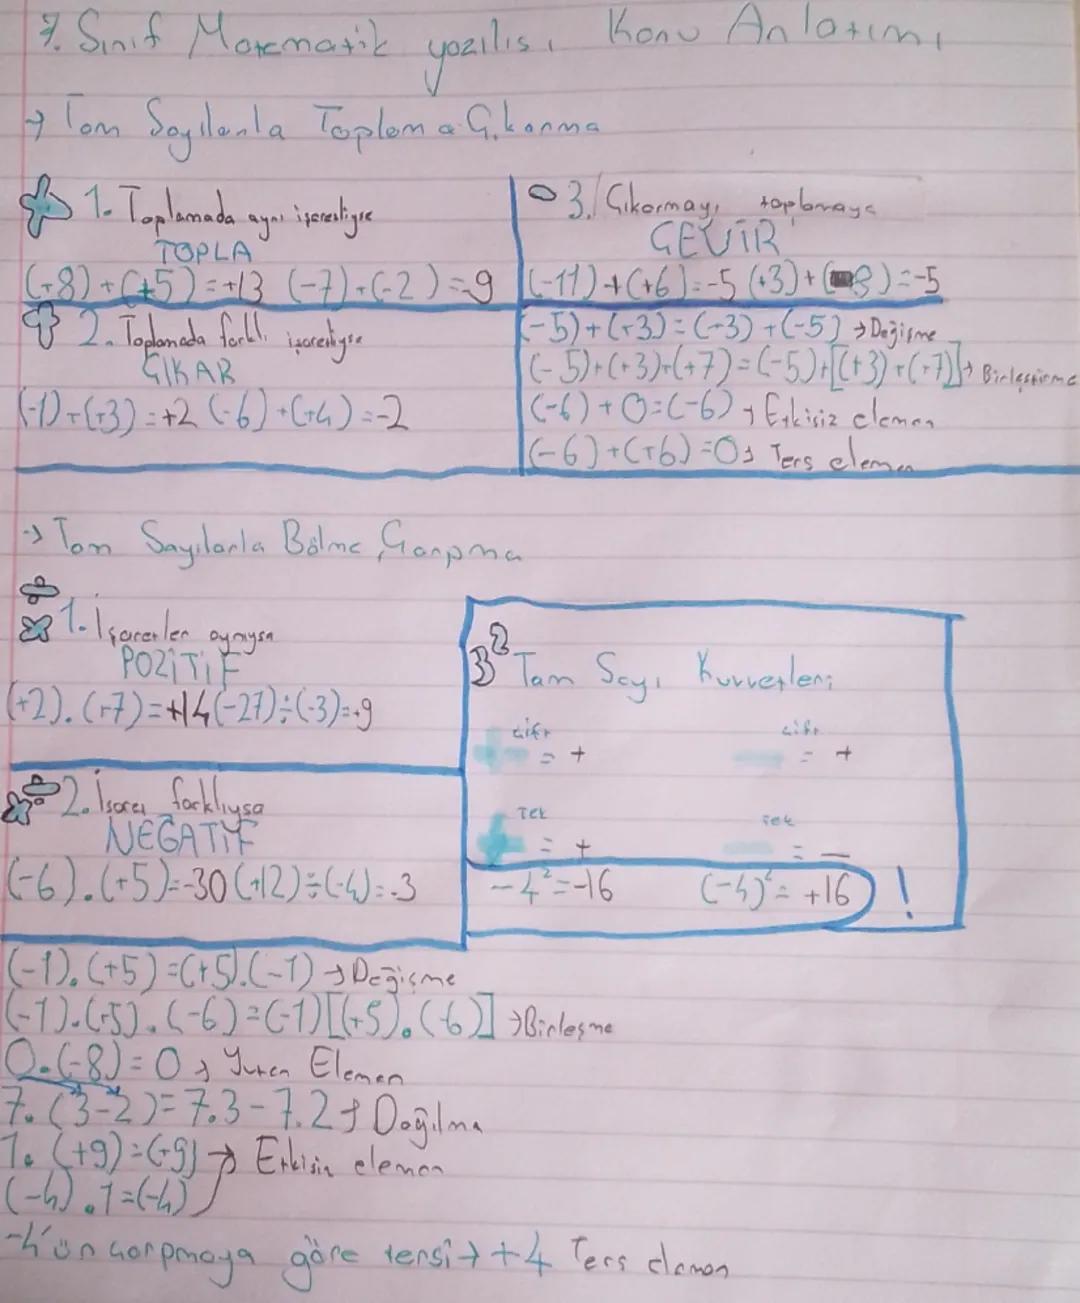 7. Sınıf Matematik yazılısı Konu Anlatımı
→ Tam Sayılarla Toplama Çıkarma
1. Toplamada aynı işaretliyse
TOPLA
(+8)+(+5)=+13 (-7)+(-2)=-9
2. Toplamada farklı işaretliyse
ÇIKAR
(-1)+(+3)=+2 (-6)+(+4)=-2
3. Çıkarmayı toplamaya
ÇEVİR
(-11)+(+6)=-5 (+3)+(-8)=-5
(-5)+(+3)=(+3)+(-5) → Değişme
(-5)+(+3)+(+7)=(-5)+[(+3)+(+7)] → Birleştirme
(-6)+0=(-6) → Etkisiz eleman
(-6)+(+6)=0 → Ters eleman
→ Tam Sayılarla Bölme, Çarpma
÷
x 1. İşaretler aynıysa
POZİTİF
(+2).(+7)=+14 (-27)÷(-3)=+9
x ÷ 2. İşaret farklıysa
NEGATİF
(-6).(+5)=-30 (+12)÷(-4)=-3
3² Tam Sayı Kuvvetleri
+ çift = + - çift = +
+ Tek = + - Tek = -
-4²=-16 (-4)²=+16 !
(-1).(+5)=(+5).(-1) → Değişme
(-1).(+5).(-6)=(-1)[(+5).(-6)] → Birleşme
0.(-8)=0 → Yutan Eleman
7.(3-2)=7.3-7.2 → Dağılma
1.(+9)=(+9) → Etkisiz eleman
(-4).1=(-4)
-4'ün çarpmaya göre tersi → +4 Ters eleman